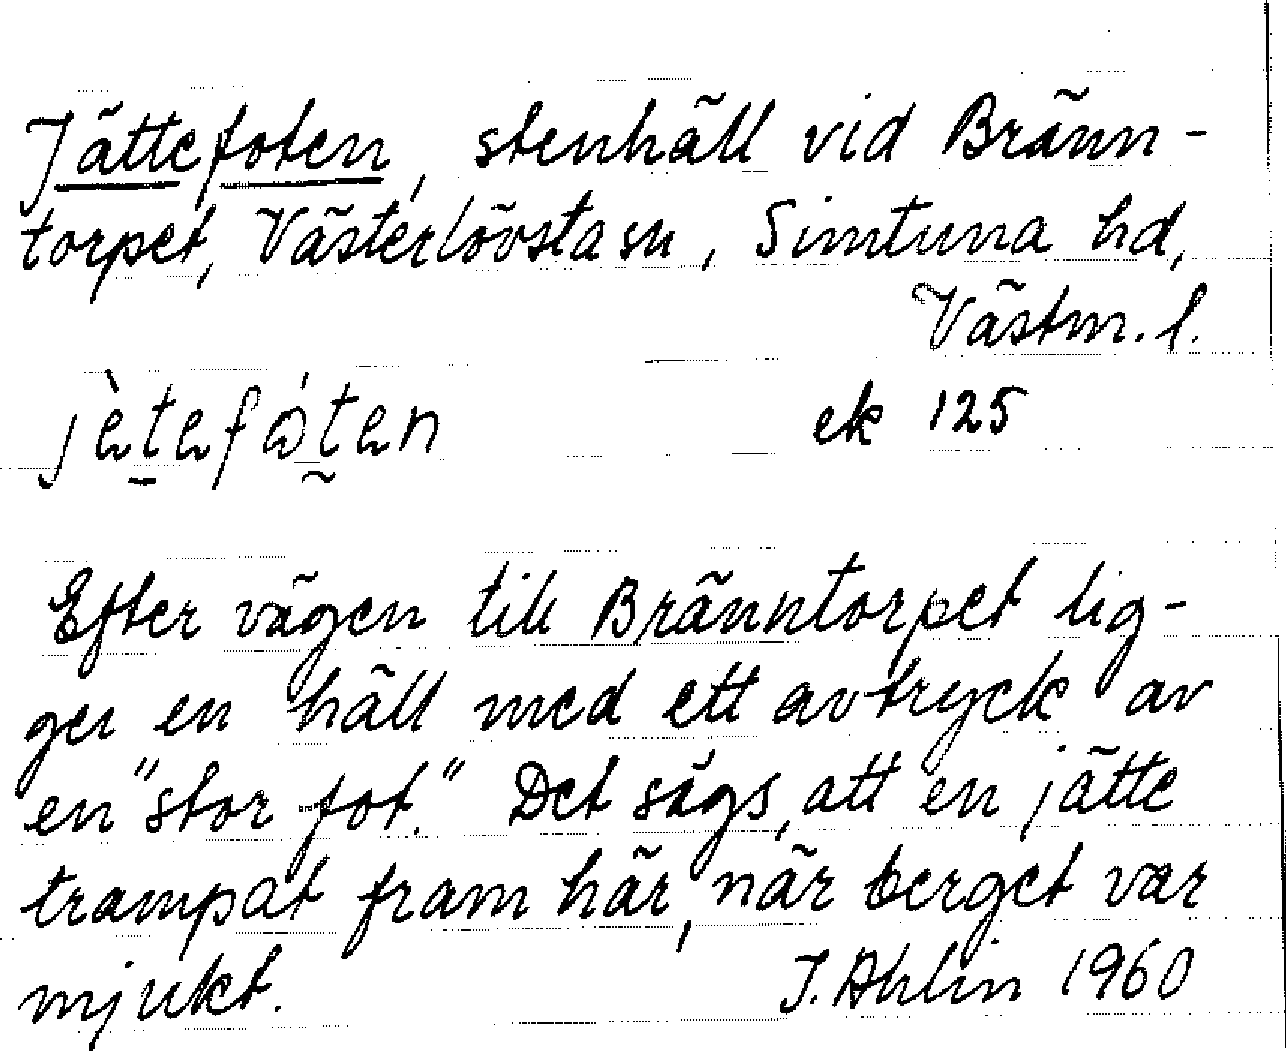 Jättefoten, stenhäll vid Bränn-
torpet, Västerlövsta sn, Simtuna hd,
Västm. l.
jètefóten ek 125
Efter vägen till Bränntorpet lig-
ger en häll med ett avtryck av
en "stor fot." Det sägs, att en jätte
trampat fram här, när berget var
mjukt. J. Ahlin 1960